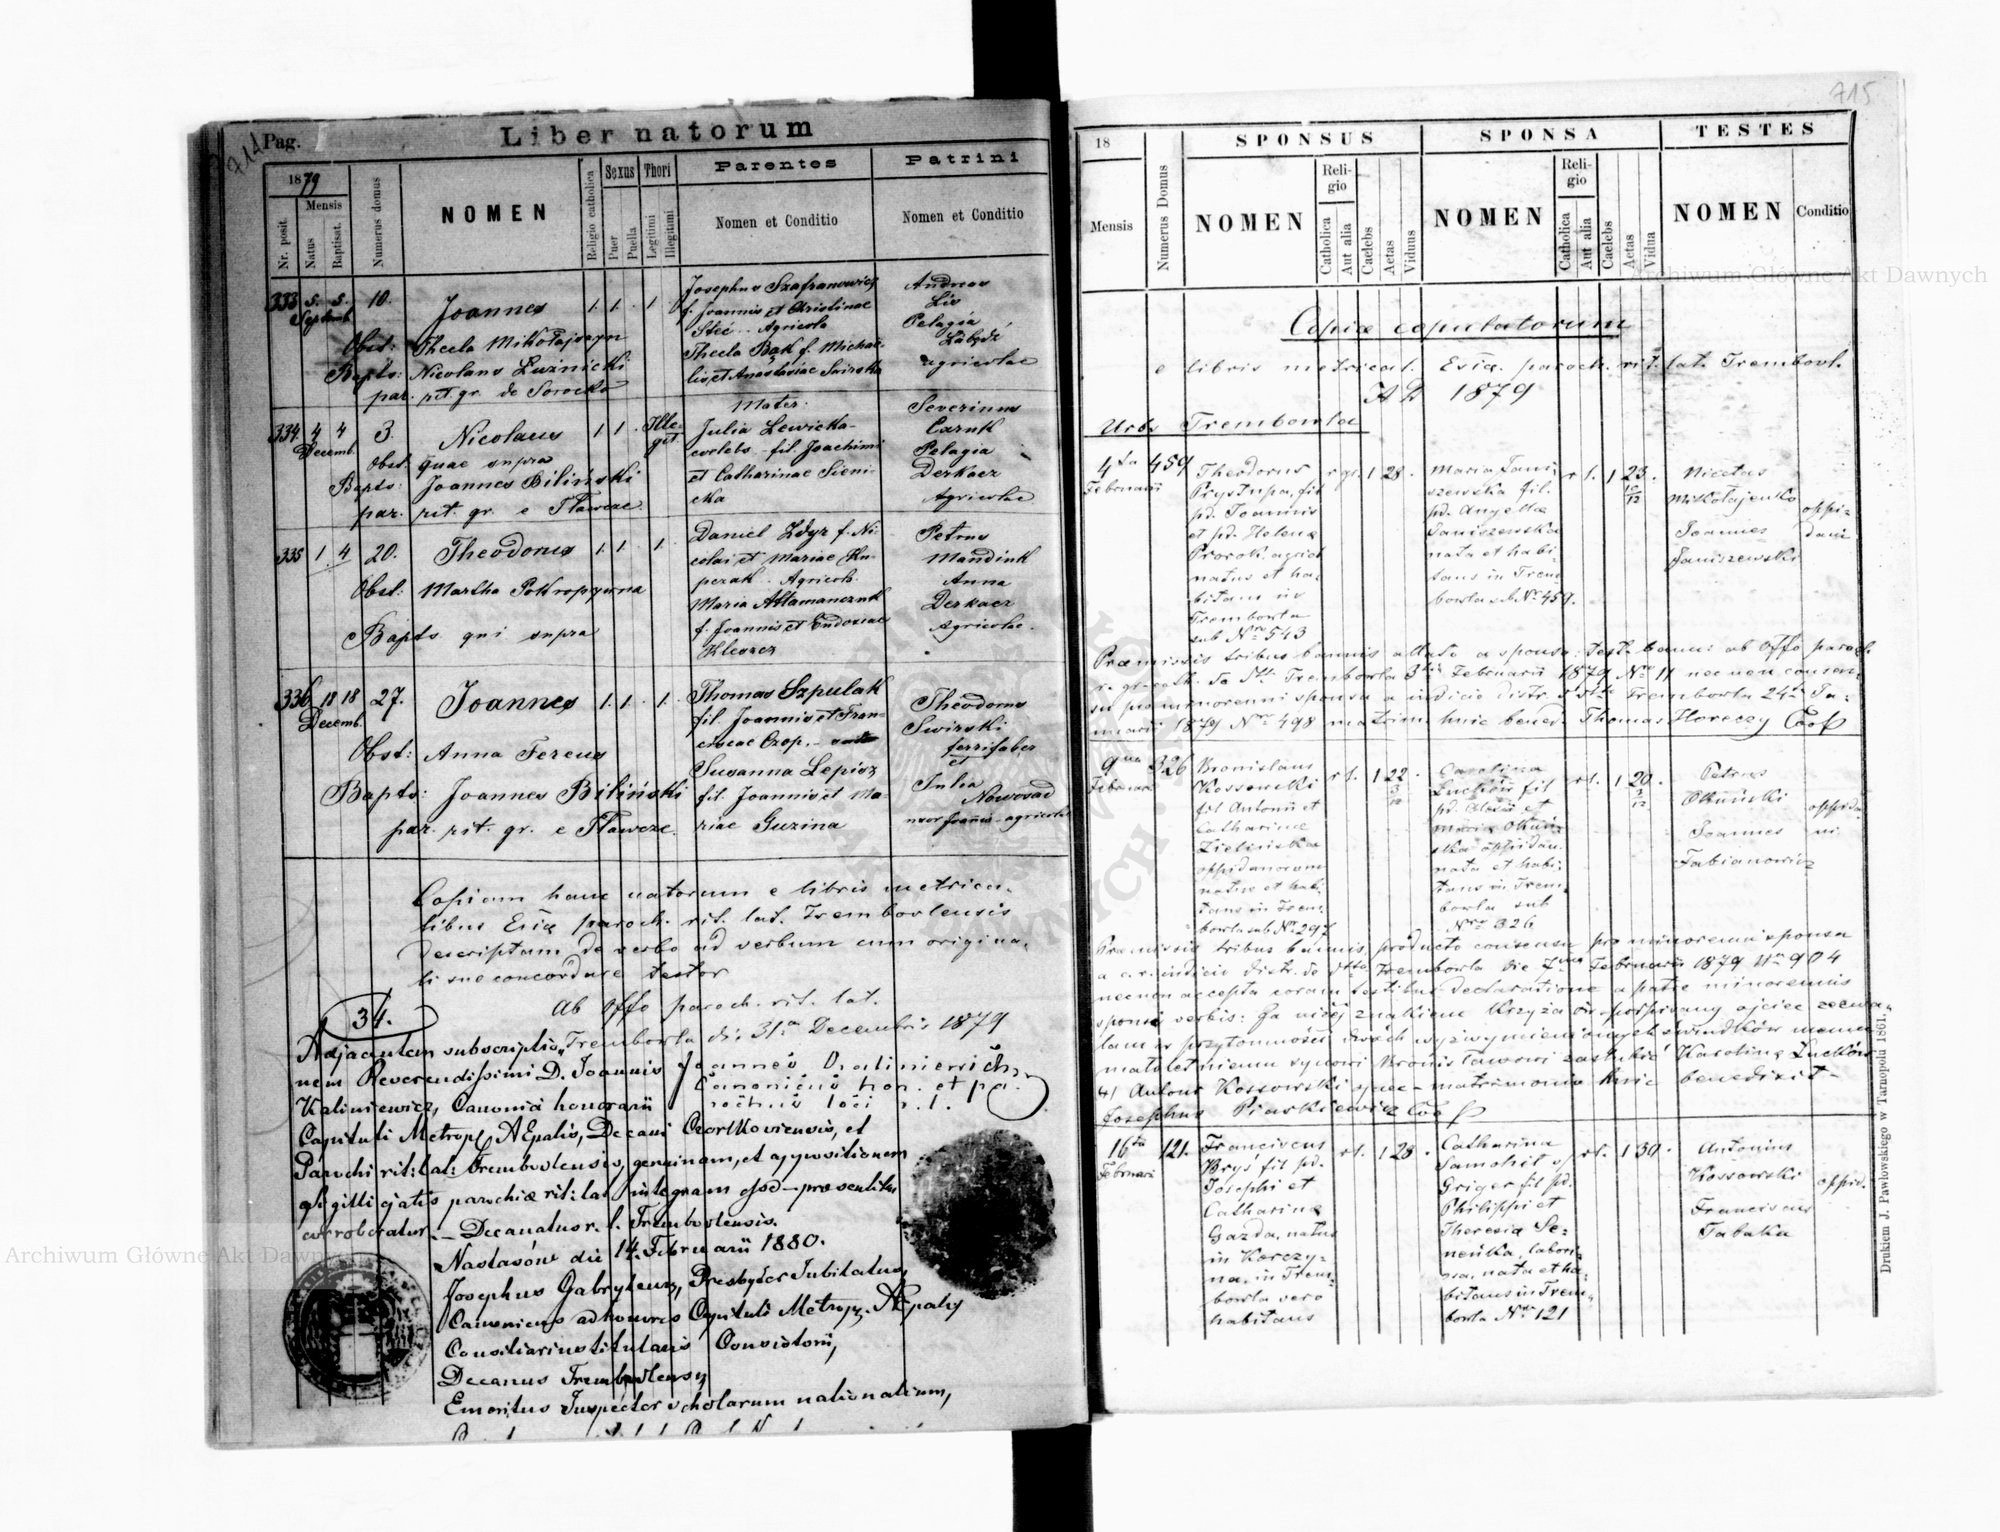 714
Pag.
Liber natorum
1879
Mensis
Nr. posit.
Natus
Baptisat.
Numerus domus
NOMEN
Religio catholica
Sexus
Puer
Puella
Thori
Legitimi
Illegitimi
Parentes
Nomen et Conditio
Patrini
Nomen et Conditio
333 5. 5. 10. Joannes 1. 1. 1.
Septemb.
Obst: Thecla Mikołajczyn
Bapts: Nicolaus Łuźnicki
par. rit. gr. de Sorocko
Josephus Szafranowicz
f. Joannis et Christinae
Steć - Agricola
Thecla Bąk f. Michae-
lis et Anastasiae Swirska
Andreas
Lis
Pelagia
Łabędź
agricolae
334 4 4 3. Nicolaus 1 1 Ille-
git.
Decemb.
Obst: quae supra
Bapts: Joannes Biliński
par. rit. gr. e Iławcze
Mater:
Julia Lewicka
caelebs - fil. Joachimi
et Catharinae Sieni-
cka
Severinus
Carnk
Pelagia
Derkacz
Agricolae
335 1 4 20. Theodorus 1. 1. 1.
Obst: Martha Pokropywna
Bapts qui supra
Daniel Zdyr f. Ni-
colai et Mariae Ku-
pczak - Agricola
Maria Attamanczuk
f. Joannis et Eudoxiae
Kleszcz
Petrus
Mandiuk
Anna
Derkacz
Agricolae
336 18 18 27. Joannes 1. 1. 1.
Decemb.
Obst: Anna Ferens
Bapts: Joannes Biliński
par. rit. gr. e Iławcze.
Thomas Szpulak
fil. Joannis et Fran-
ciscae Czop.
Susanna Lepisz
fil. Joannis et Ma-
riae Guzina
Theodorus
Swirski
ferrifaber
et
Julia
Nowosad
uxor Joannis - agricolae
Copiam hanc natorum e libris metrica-
libus Eccła paroch. rit. lat. Trembovlensis
descriptam de verbo ad verbum cum origina-
li suo concordare testor
Ab offo paroch. rit. lat.
Trembowla d: 31a Decembris 1879
34.
Adjacentem subscriptio-
nem Reverendissimi D. Joannis
Kaliniewicz, Canonici honorarii
Capituli Metropł AEpalis, Decani Czortkoviensis, et
Parochi rit: lat: Trembovlensis, genuinam, et appositionem
sigilli parochiæ rit: lat integram esse - præsentibus
corroboratur. - Decanatus r. l. Trembovlensis.
Nastasów die 14. Februarii 1880.
Josephus Gabryluns, Presbyter Jubilatus,
Canonicus ad honores Capituli Metrop. AEpalis
Consiliarius titularis Consistorii,
Decanus Trembovlensis
Emeritus Inspector scholarum nationalium,
Joannes Kaliniewicz,
Canonicus hon. et pa-
rochus loci r. l.
715
18
Mensis
Numerus Domus
SPONSUS
NOMEN
Reli-
gio
Catholica
Aut alia
Caelebs
Aetas
Viduus
SPONSA
NOMEN
Reli-
gio
Catholica
Aut alia
Caelebs
Aetas
Vidua
TESTES
NOMEN
Conditio
Copiæ copulatorum
e libris metrical. Eccła paroch. rit. lat. Trembovl.
AD 1879
Urbs Trembowla
4ta 459
Februarii
Theodorus
Prystupa, fil
pd. Joannis
et pd. Helena
Prorok, agricol
natus et ha-
bitans in
Trembowla
sub Nro 543
r. gr. 1 28.
Maria Jani-
szewska fil.
pd. Angella
Janiszewska
nata et habi-
tans in Trem-
bowla sub Nr. 459.
r l. 1 23.
10/12
Nicetas
Mikołajenko
Joannes
Janiszewski
oppi-
dani
Præmissis tribus bannis allato a sponso: Test. bann: ab Offo paroch.
r. gr. cath. de dto Trembowla 3tia Februarii 1879 Nro 11 nec non consen-
su pro minorenni sponsa a judicio distr. d dto Trembowla 24a Ja-
nuarii 1879 Nro 498 matrim. huic bened. Thomas Horeczy Coop
9na 326
Februarii
Bronislaus
Kossowski
fil Antonii et
Catharinæ
Zielinska
oppidanorum
natus et habi-
tans in Trem-
bowla sub Nr. 297
r l. 1 22.
3/12
Carolina
Luckow fil
pd. Alexii et
Maria Okuń-
ska oppidan.
nata et habi-
tans in Trem-
bowla sub
Nro 326
r l. 1 20.
3/12
Petrus
Okuński
Joannes
Fabianowicz
oppida-
ni
Præmissis tribus bannis producto consensu pro minorenni sponsa
a c. r. judicio distr. de dtto Trembowla die 7ma Februarii 1879 Nro 904
necnon accepta coram testibus declaratione a patre minorennis
sponsi verbis: Ja niżej znakiem krzyża św. podpisany ojciec zezwa-
lam w przytomności dwóch wyżwymienionych świadków memu
małoletniemu synowi Bronisławowi zaślubić Karolinę Luckow
+) Antoni Kossowski ojciec - matrimonio huic benedixit -
Josephus Piaskiewicz Coop
16ta 121.
Februarii
Franciscus
Brys fil pd.
Josephi et
Catharina
Gazda, natus
in Korczy-
na, in Trem-
bowla vero
habitans
r l. 1 28.
Catharina
Samohit
Griger fil pd.
Philippi et
Theresia Se-
neńka, labori-
osa, nata et ha-
bitans in Trem-
bowla Nro 121
r l. 1 30.
Antonius
Kossowski
Franciscus
Tabaka
oppid.
Drukiem J. Pawłowskiego w Tarnopolu 1861.
Archiwum Główne Akt Dawnych
Archiwum Główne Akt Dawnych